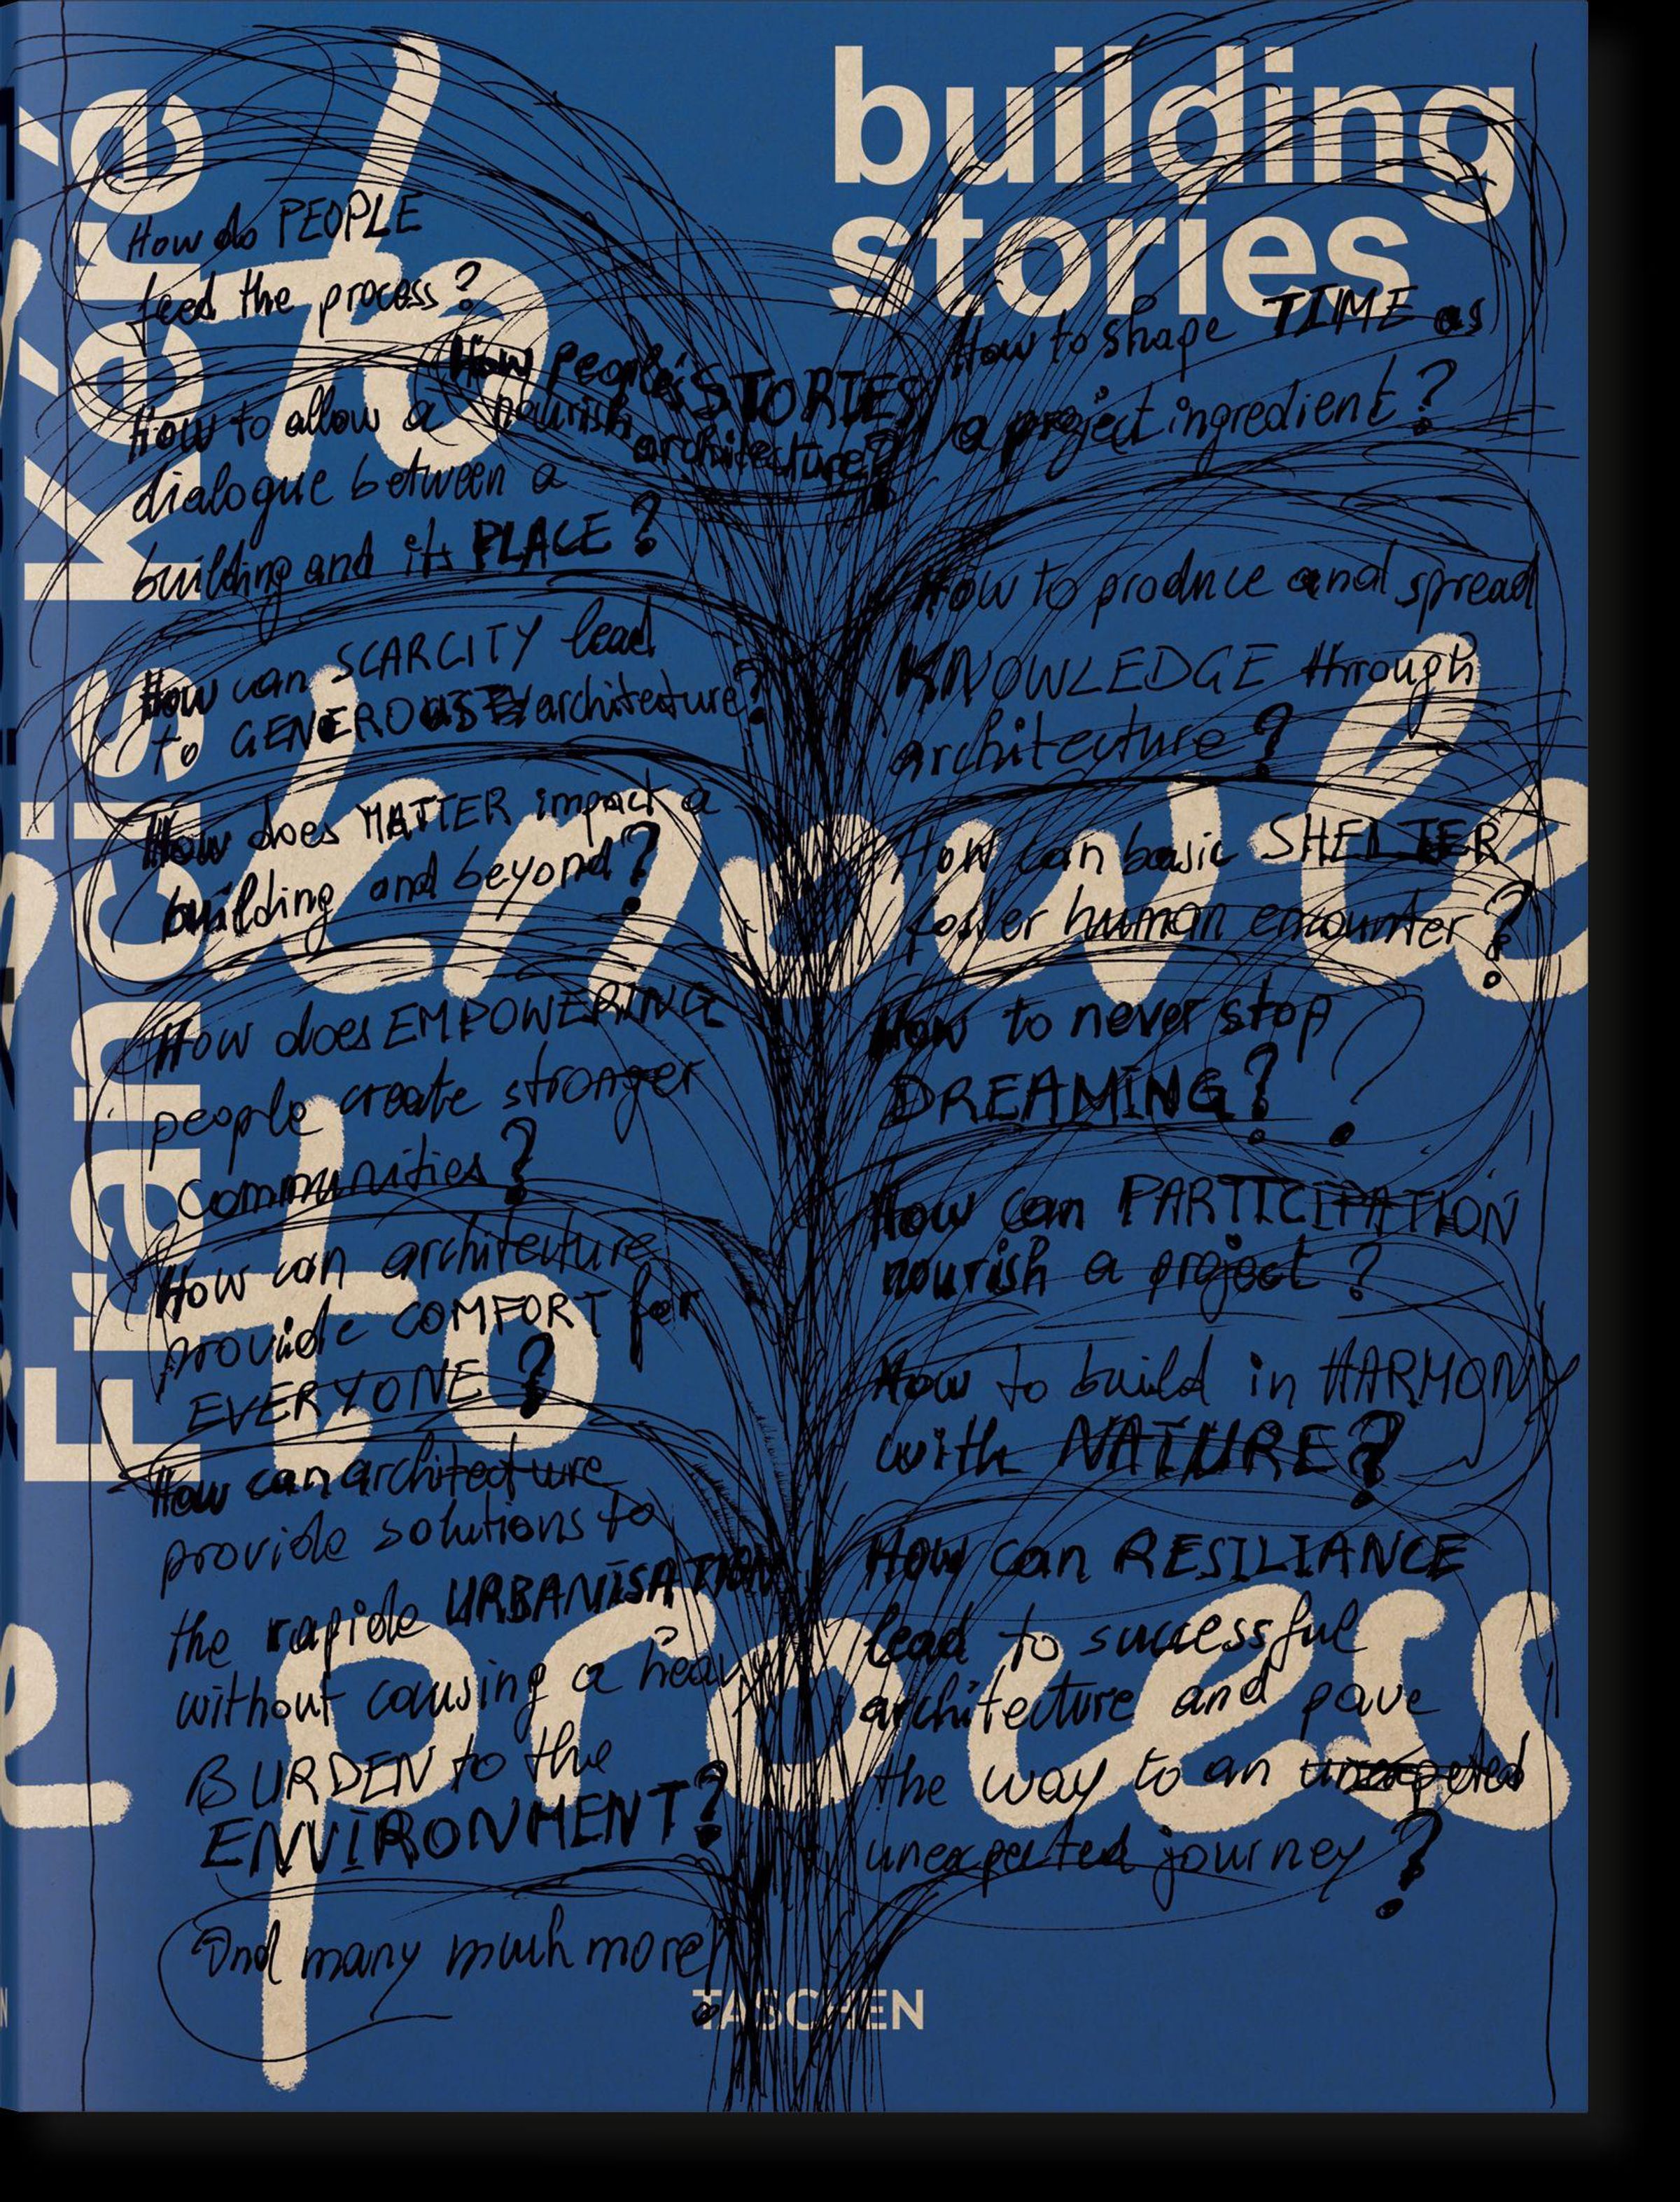 Francis Kéré
building
stories
How do PEOPLE
feed the process?
How people's STORIES
nourish
architecture?
How to shape TIME as
a project ingredient?
How to allow a
dialogue between a
building and its PLACE?
How can SCARCITY lead
to GENEROUS architecture?
How does MATTER impact a
building and beyond?
How does EMPOWERING
people create stronger
Communities?
How can architecture
provide COMFORT for
EVERYONE?
How can architecture
provide solutions to
the rapide URBANISATION
without causing a heavy
BURDEN to the
ENVIRONMENT?
And many much more!
How to produce and spread
KNOWLEDGE through
architecture?
How can basic SHELTER
foster human encounter?
How to never stop
DREAMING??
How can PARTICIPATION
nourish a project?
How to build in HARMONY
with NATURE?
How can RESILIANCE
lead to successful
architecture and pave
the way to an
unexpected journey?
to
knowle
to
process
TASCHEN